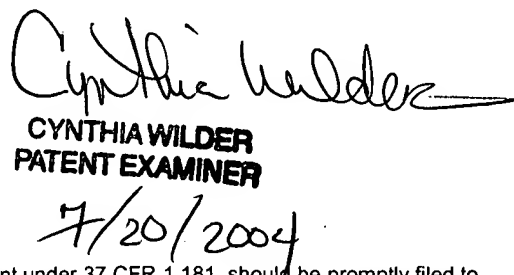 Cynthia Wilder
CYNTHIA WILDER
PATENT EXAMINER
7/20/2004
nt under 37 CFR 1.181, should be promptly filed to